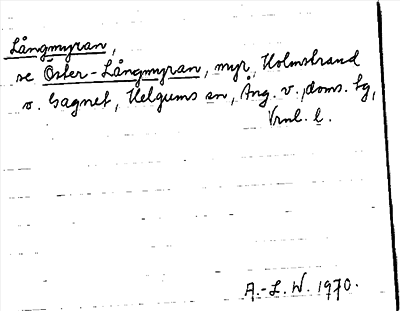 Långmyran,
se Öster-Långmyran, myr, Holmstrand
o. Gagnet, Helgums sn, Ång. v., doms. tg,
Vrnl. l.
A.-L. W. 1970.